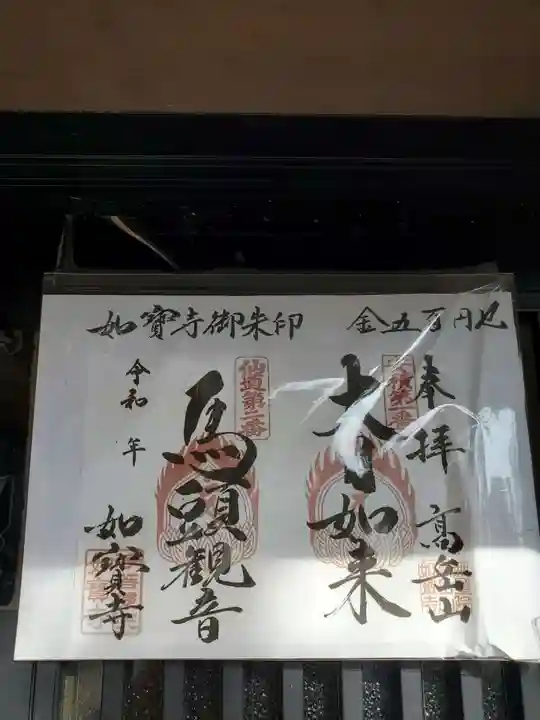 如寶寺御朱印　金五百円也
奉拝　高岳山
大日如来
仙道第二番
馬頭観音
令和　年
如寶寺